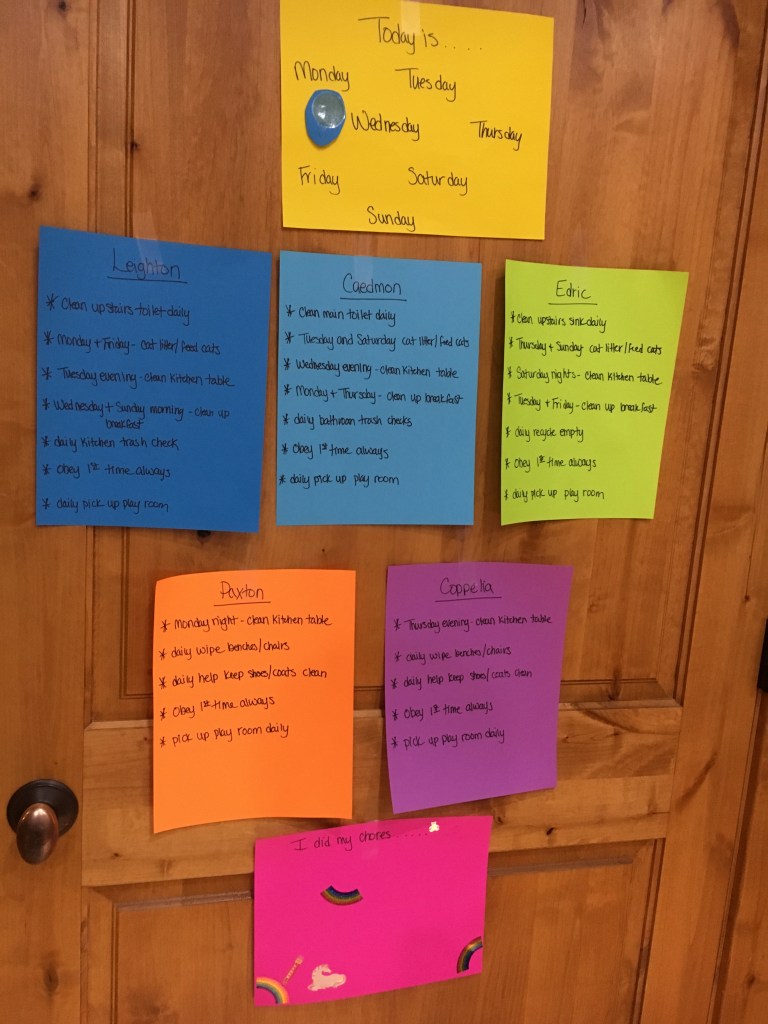 Today is . . . .
Monday Tuesday
Wednesday Thursday
Friday Saturday
Sunday
Leighton
* Clean upstairs toilet daily
* Monday + Friday - cat litter/feed cats
* Tuesday evening - clean Kitchen table
* Wednesday + Sunday morning - clean up
breakfast
* daily Kitchen trash check
* Obey 1st time always
* daily pick up play room
Caedmon
* Clean main toilet daily
* Tuesday and Saturday cat litter/feed cats
* Wednesday evening - clean Kitchen table
* Monday + Thursday - clean up breakfast
* daily bathroom trash checks
* Obey 1st time always
* daily pick up play room
Edric
* Clean upstairs sink daily
* Thursday + Sunday cat litter/feed cats
* Saturday nights - clean Kitchen table
* Tuesday + Friday - clean up breakfast
* daily recycle empty
* Obey 1st time always
* daily pick up play room
Paxton
* Monday night - clean Kitchen table
* daily wipe benches/chairs
* daily help keep shoes/coats clean
* Obey 1st time always
* pick up play room daily
Coppelia
* Thursday evening - clean Kitchen table
* daily wipe benches/chairs
* daily help keep shoes/coats clean
* Obey 1st time always
* pick up play room daily
I did my chores . . . . . .